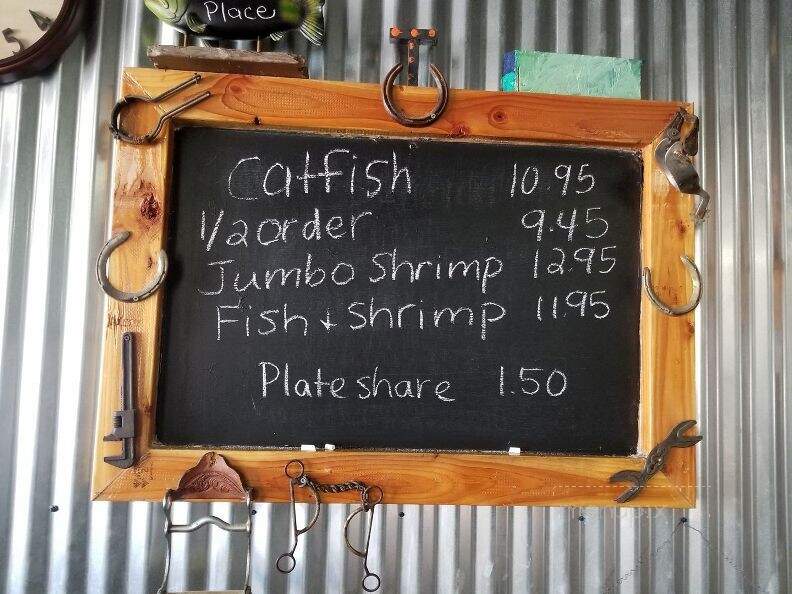 Place
Catfish 10.95
1/2 order 9.45
Jumbo Shrimp 12.95
Fish + Shrimp 11.95
Plate share 1.50